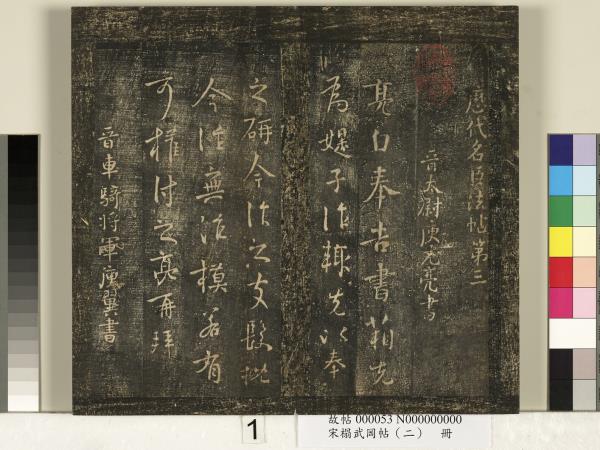 歷代名臣法帖第三
晉太尉庾元亮書
亮白奉告書箱先
為媞子作輒先以奉
之研今作之
今作無法模若有
可權付之亮再拜
晉車騎將軍庾翼書
1
故帖 000053 N000000000
宋榻武岡帖（二） 冊